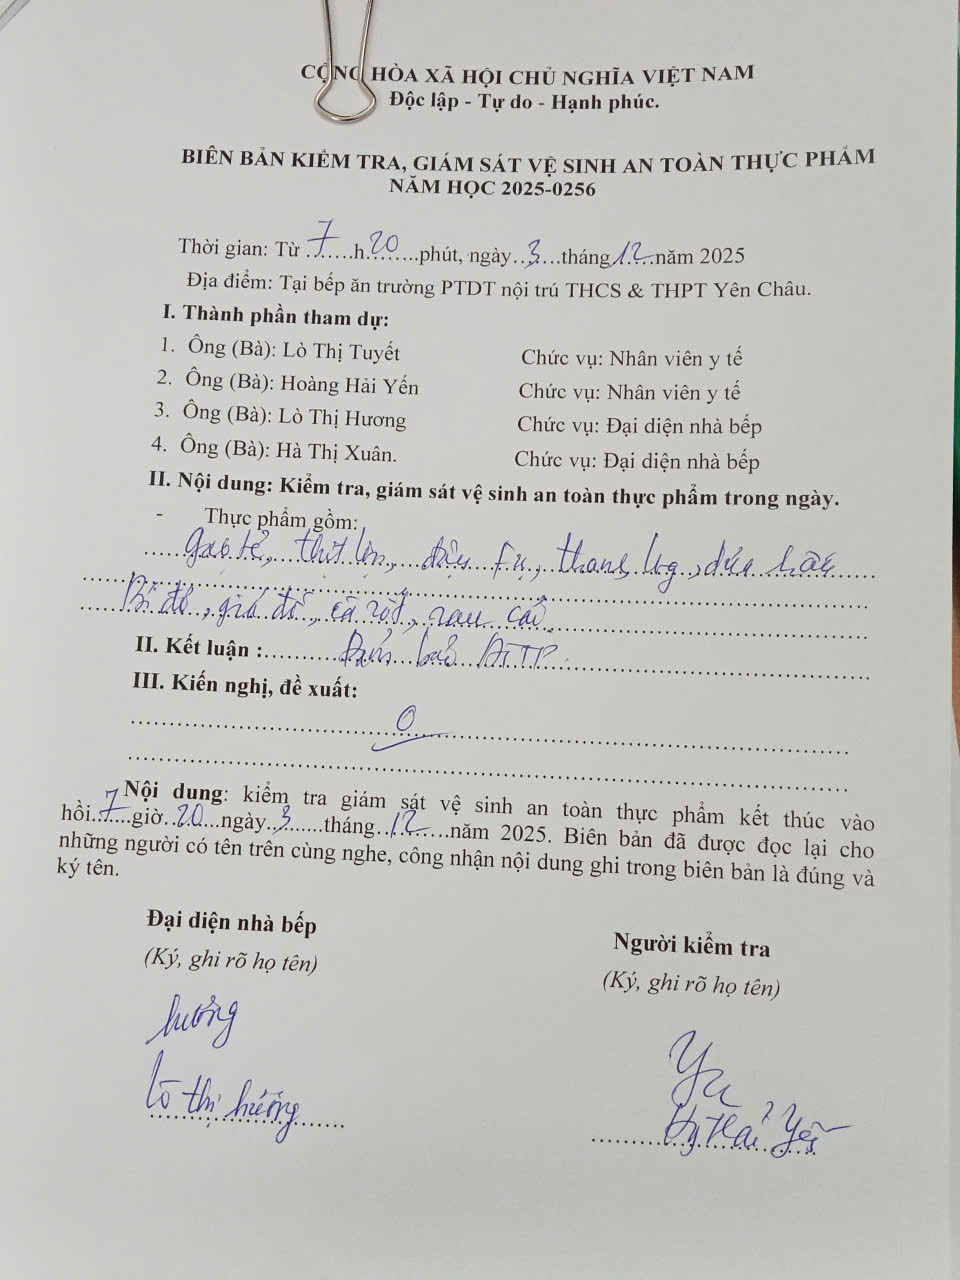 CỘNG HÒA XÃ HỘI CHỦ NGHĨA VIỆT NAM
Độc lập - Tự do - Hạnh phúc.
BIÊN BẢN KIỂM TRA, GIÁM SÁT VỆ SINH AN TOÀN THỰC PHẨM
NĂM HỌC 2025-0256
Thời gian: Từ 7 h 20 phút, ngày 3 tháng 12 năm 2025
Địa điểm: Tại bếp ăn trường PTDT nội trú THCS & THPT Yên Châu.
I. Thành phần tham dự:
1. Ông (Bà): Lò Thị Tuyết Chức vụ: Nhân viên y tế
2. Ông (Bà): Hoàng Hải Yến Chức vụ: Nhân viên y tế
3. Ông (Bà): Lò Thị Hương Chức vụ: Đại diện nhà bếp
4. Ông (Bà): Hà Thị Xuân. Chức vụ: Đại diện nhà bếp
II. Nội dung: Kiểm tra, giám sát vệ sinh an toàn thực phẩm trong ngày.
- Thực phẩm gồm:
gạo tẻ, thịt lợn, đậu fụ, thanh long, dưa hấu
Bí đỏ, giá đỗ, cà rốt, rau cải
II. Kết luận : Đảm bảo ATTP.
III. Kiến nghị, đề xuất:
0
Nội dung: kiểm tra giám sát vệ sinh an toàn thực phẩm kết thúc vào
hồi 7 giờ 20 ngày 3 tháng 12 năm 2025. Biên bản đã được đọc lại cho
những người có tên trên cùng nghe, công nhận nội dung ghi trong biên bản là đúng và
ký tên.
Đại diện nhà bếp Người kiểm tra
(Ký, ghi rõ họ tên) (Ký, ghi rõ họ tên)
hương
Lò thị hương Hg Hải Yến